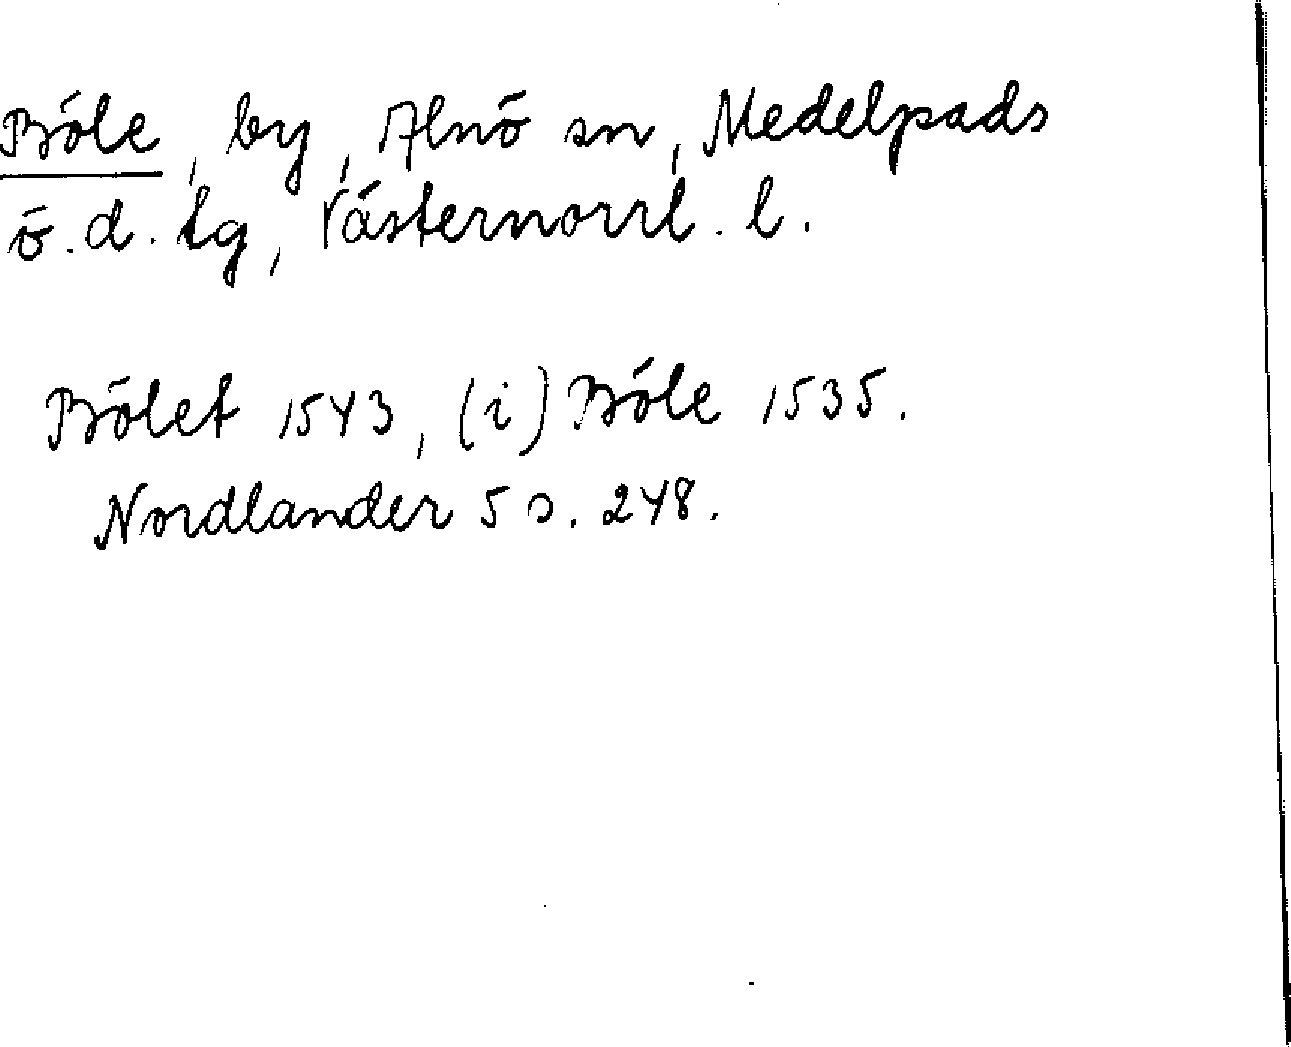 Böle, by, Alnö sn, Medelpads
ö. d. tg, Västernorrl. l.
Bölet 1543, (i) Böle 1535.
Nordlander 5 s. 248.